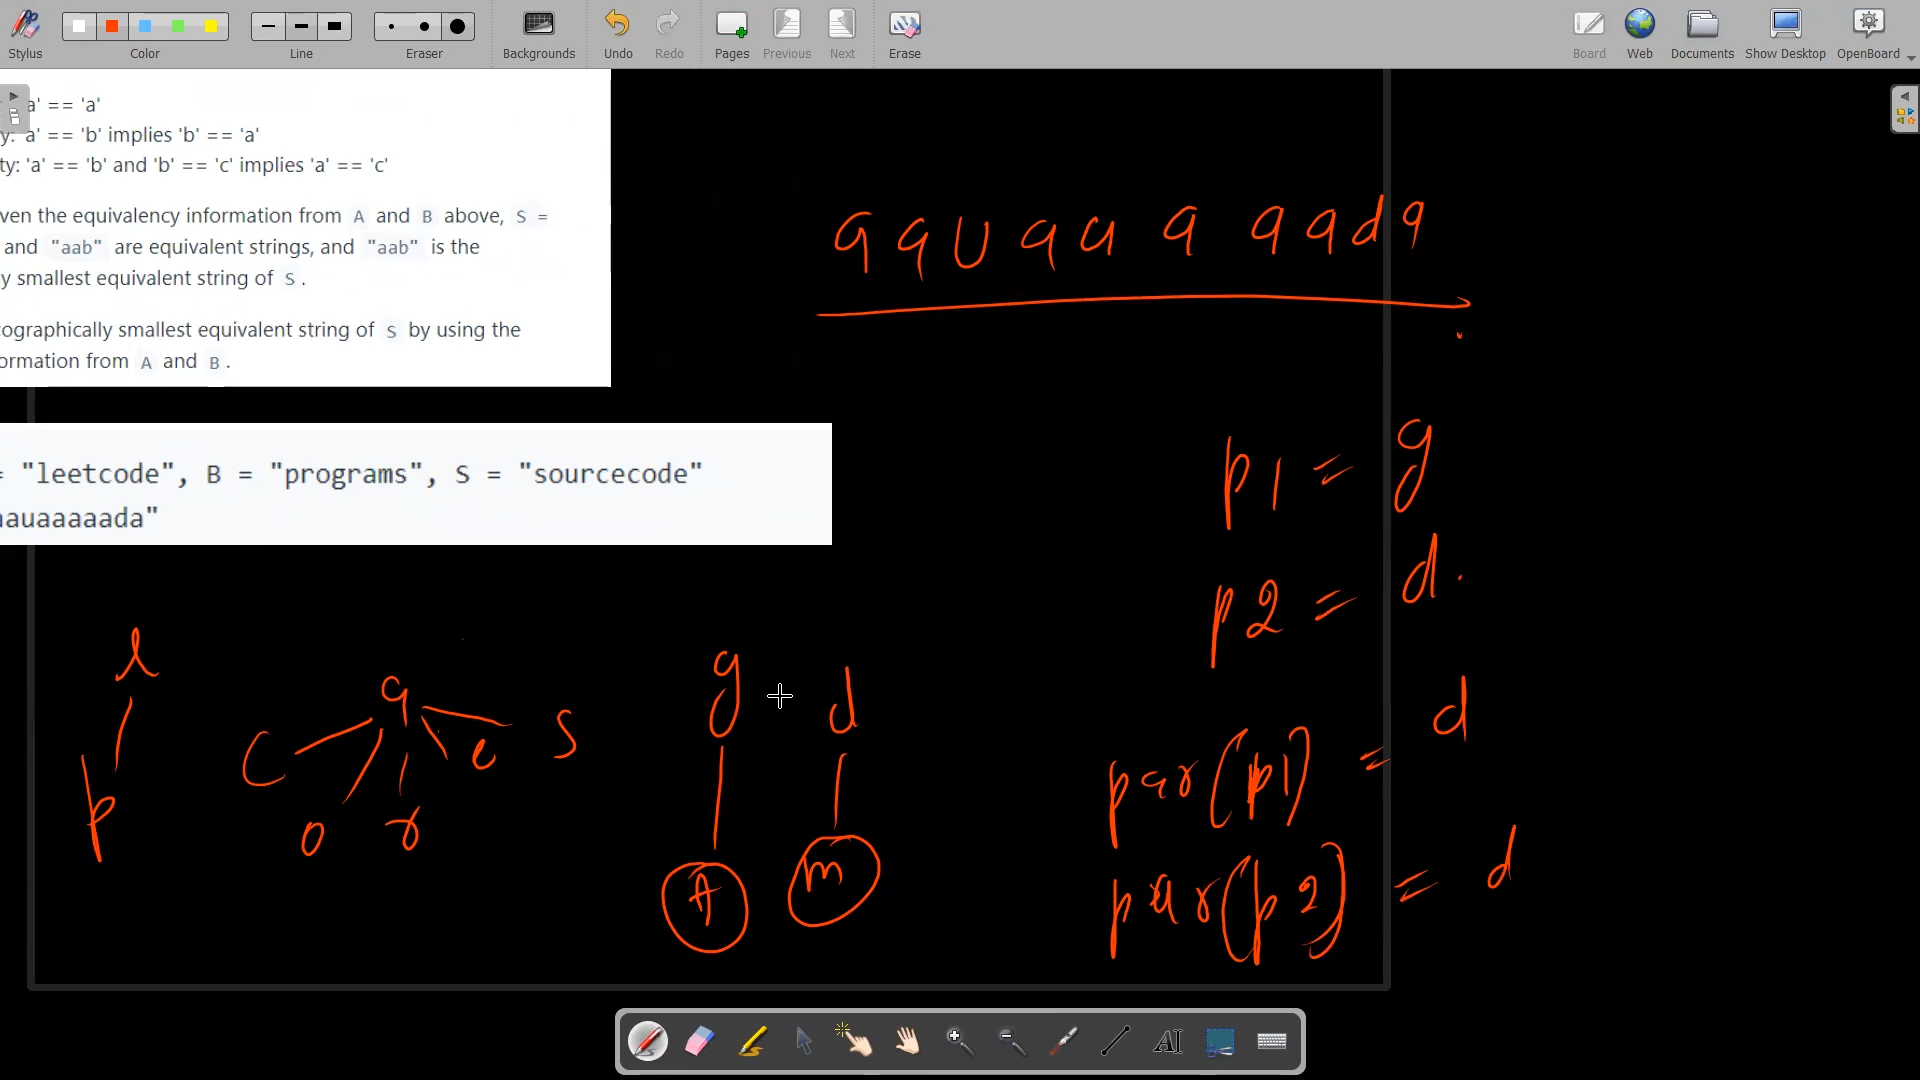 Stylus Color Line Eraser Backgrounds Undo Redo Pages Previous Next Erase Board Web Documents Show Desktop OpenBoard
a' == 'a'
y: 'a' == 'b' implies 'b' == 'a'
ty: 'a' == 'b' and 'b' == 'c' implies 'a' == 'c'
ven the equivalency information from A and B above, S =
and "aab" are equivalent strings, and "aab" is the
y smallest equivalent string of S .
cographically smallest equivalent string of S by using the
ormation from A and B .
a a u a a a a a d a
= "leetcode", B = "programs", S = "sourcecode"
auaaaaada"
p1 = g
p2 = d.
l
p
a
c e s
o r
g d
m
par(p1) = d
par(p2) = d
AI